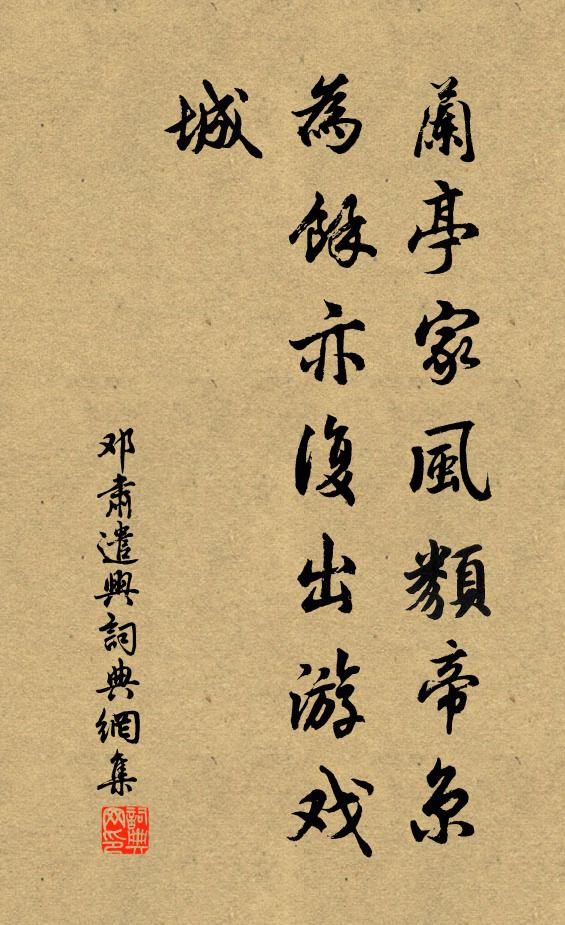 蘭亭家風類帝京
為餘亦復出游戏
城
邓肅遣興詞典網集
詞典网印